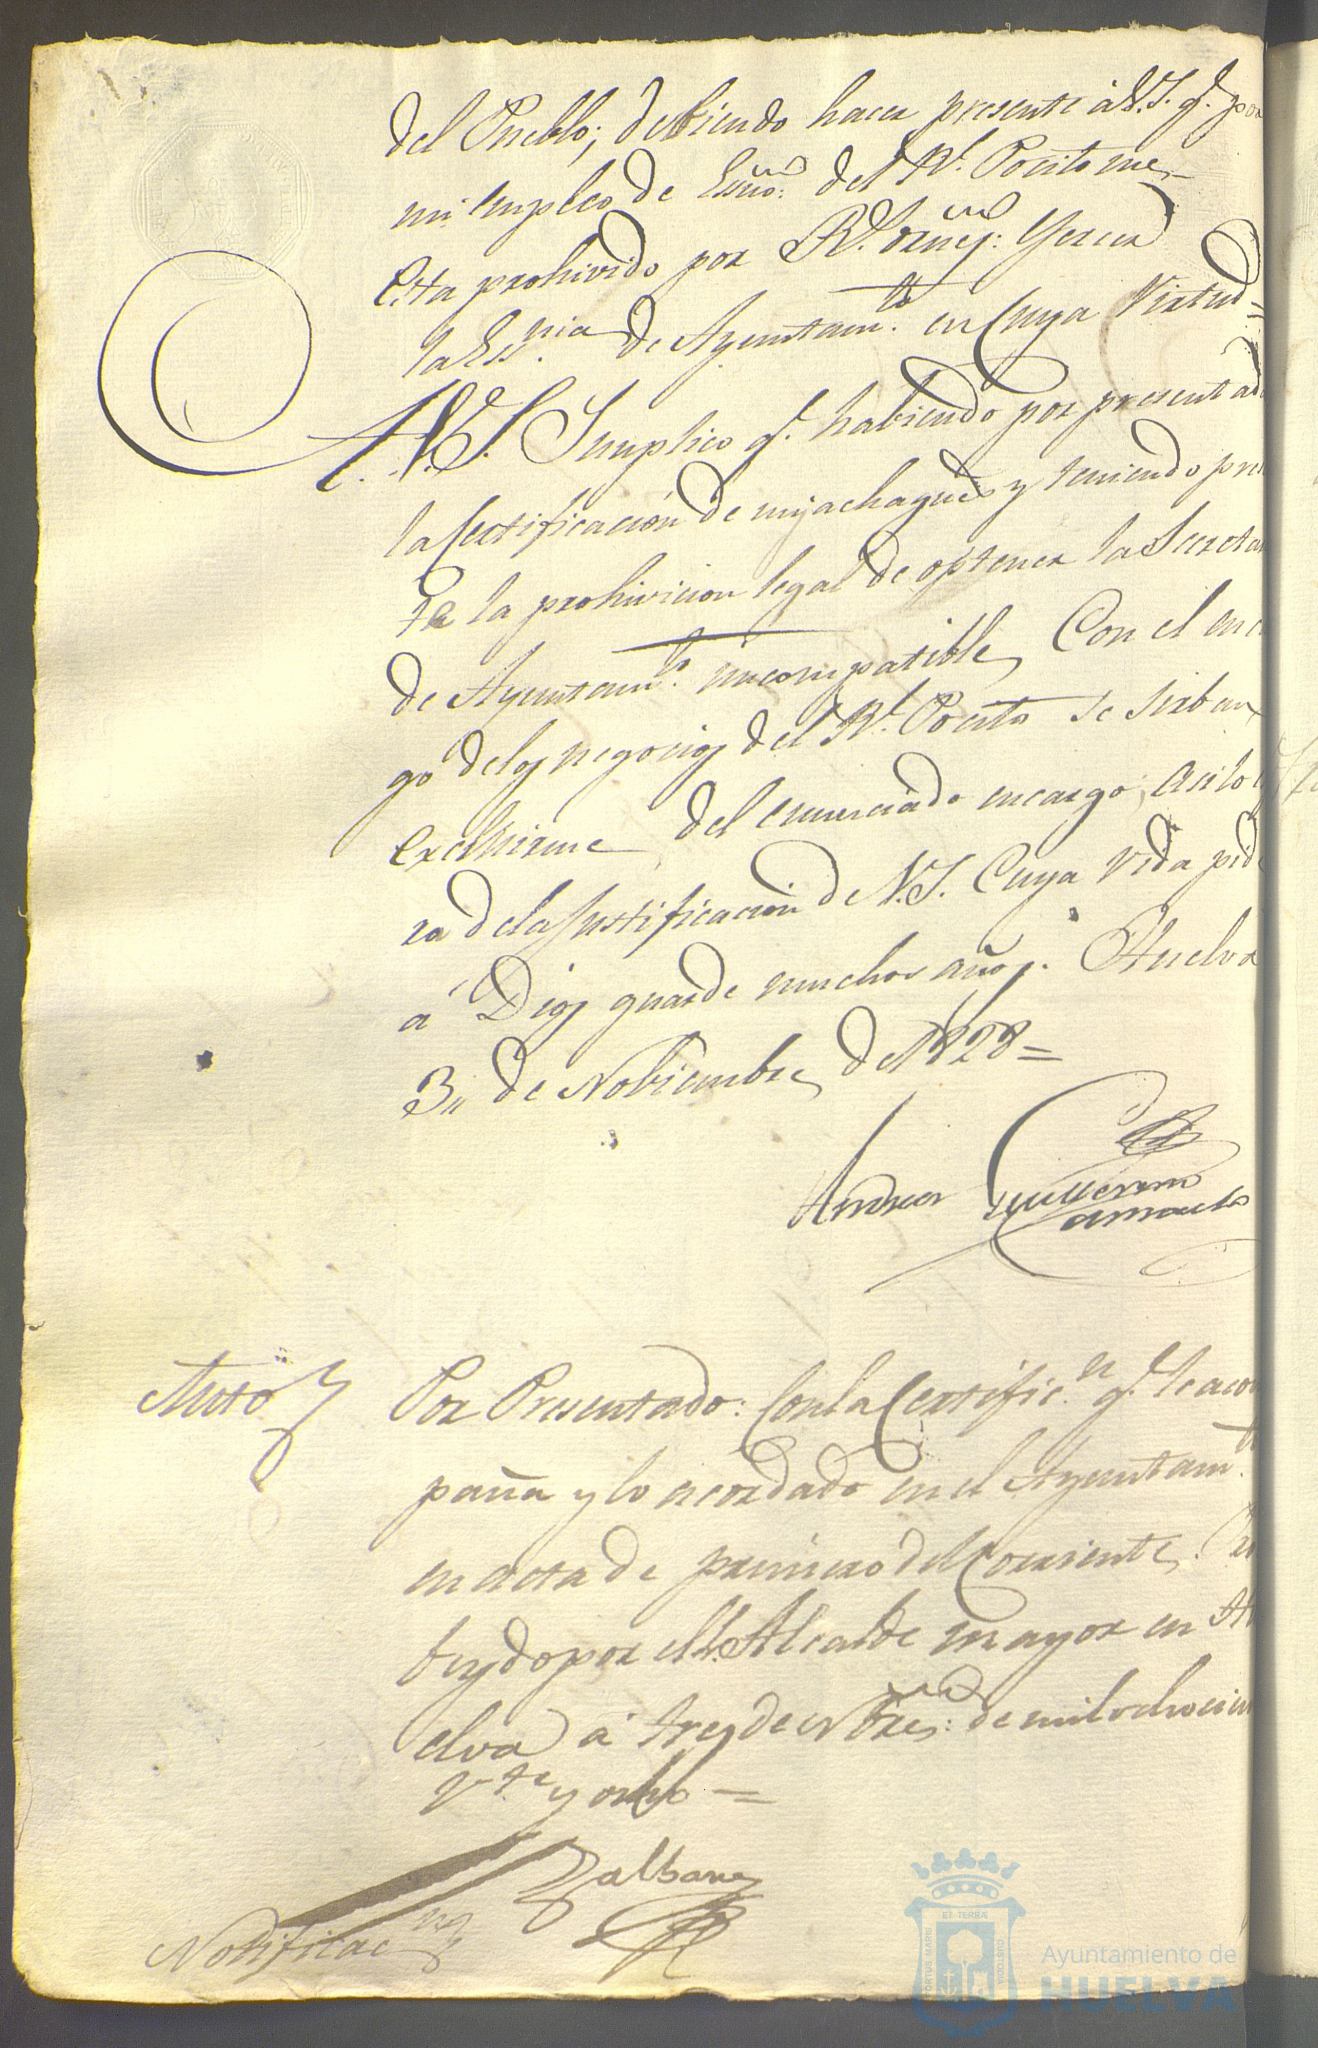 del Pueblo; debiendo hacer presente á V.S. q.e por
mi empleo de Essno: del R.l Posito me
esta prohivido por R.l orñes: Yercer
la Ess.nia de Ayuntam.to en Cuya Virtud=
A V.S. Suplico q.e habiendo por presentad
la Certificacion de mis achaques y teniendo pre
te la prohivicion legal de optener la Secreta
de Ayuntam.to incompatible Con el enc
go delos negocios del R.l Posito se sirban
exclhirme del enunciado encargo; asi lo
ra dela Justificacion de V.S. Cuya Vida pid
á Dios guarde muchos años. Huelva
3,, de Nobiembre de 1828=
Andres Guillermo
Camacho
Auto
Por Presentado: Con la Certific.n q.e le acom
paña y lo acordado en el Ayuntam.to
en acta de primero del Corriente. Pro
beydo por el S.r Alcalde mayor en Hu
elva á tres de Nbre: de mil ochocien
v.te y ocho =
Zalbane
Notificac.nes
Ayuntamiento de
HUELVA
PORTUS MARIS ET TERRÆ CUSTODIA